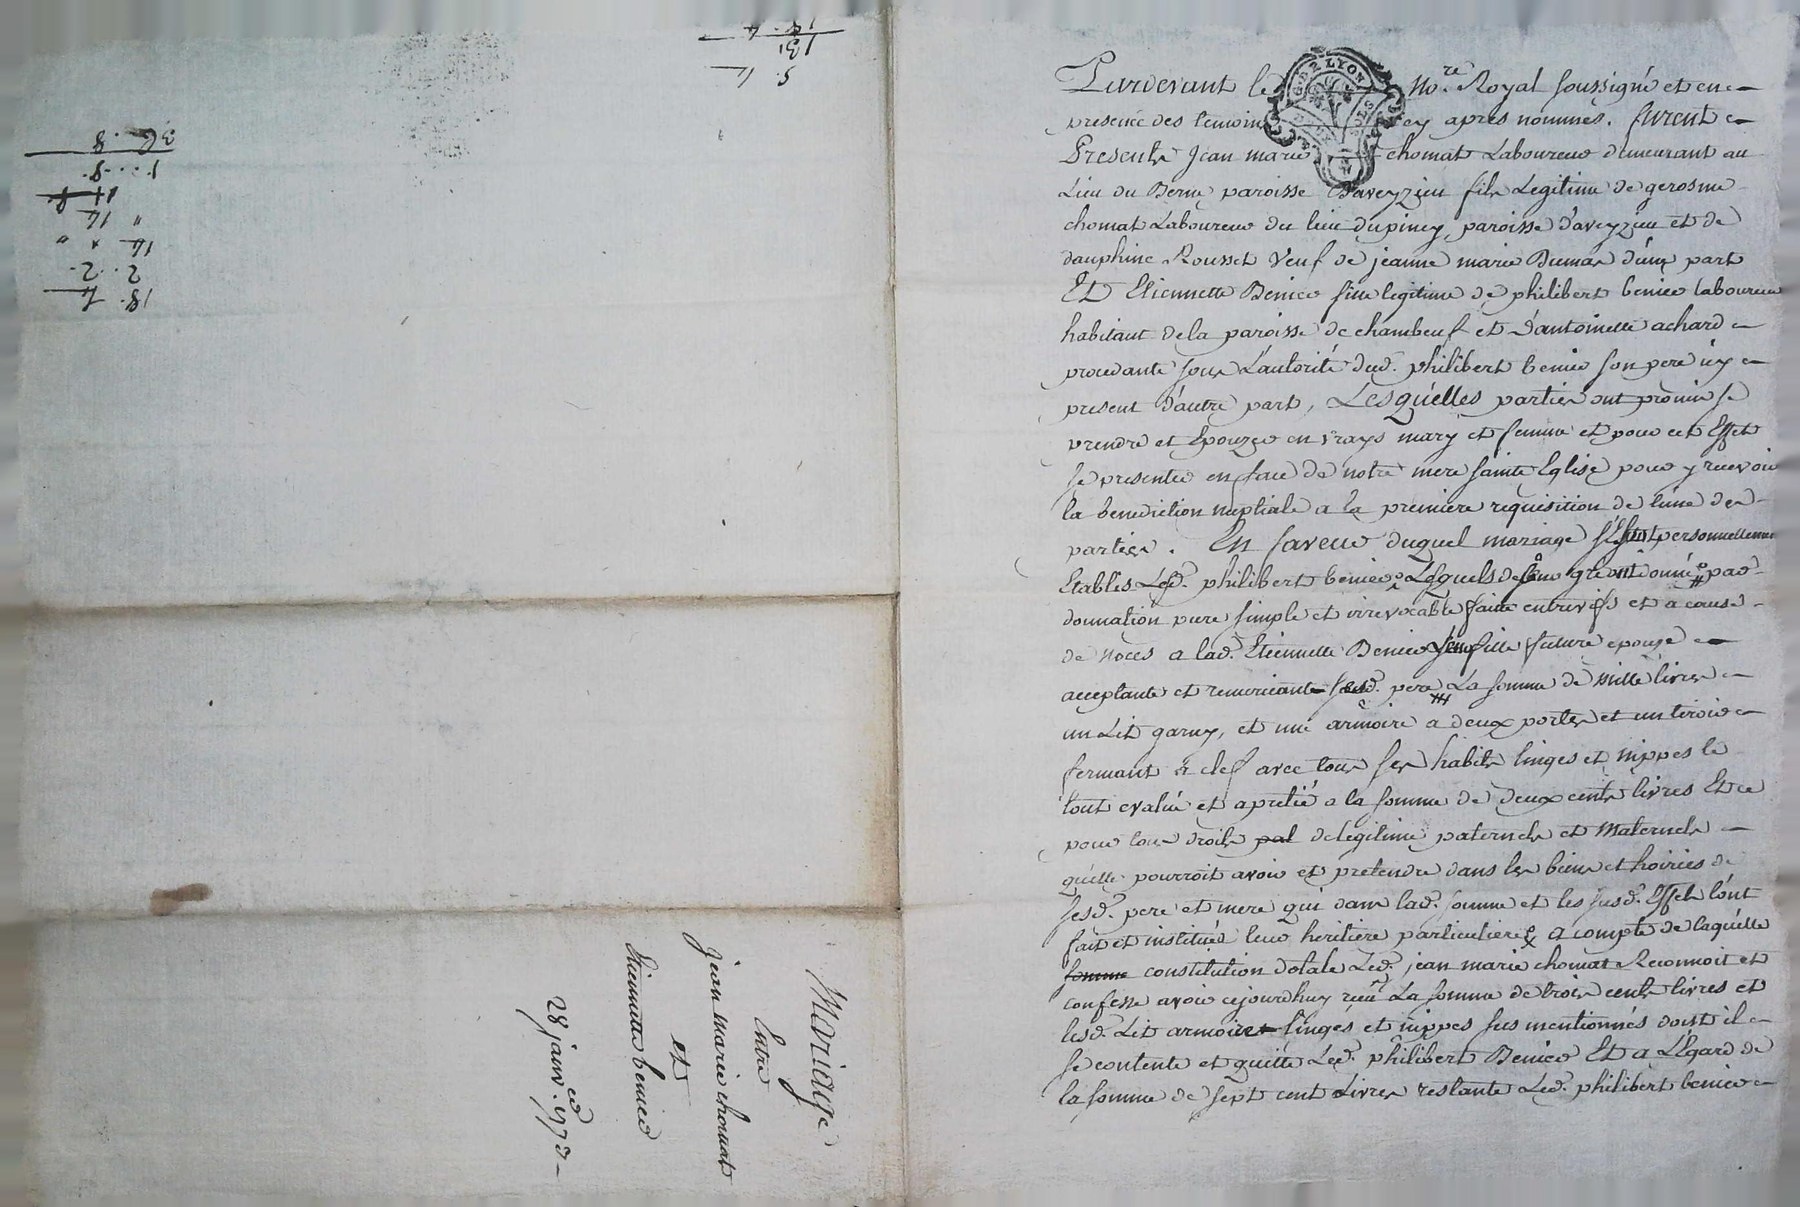 Pardevant le No.re Royal soussigné et en
presence des temoins cy apres nommés. furent
Presents Jean marie chomat Laboureur demeurant au
Lieu du Berny paroisse D'aveyzieu fils Legitime de gerosme
chomat Laboureur du lieu dupiney, paroisse d'aveyzieu et de
dauphine Rousset Veuf de jeanne marie Dumas d'une part
Et Etiennette Benier fille legitime de philibert benier laboureur
habitant dela paroisse de chambeuf et d'antoinette achard
procedante sous L'autorité dud. philibert benier son pere icy
present d'autre part, Lesquelles parties ont promis se
prendre et Epouzer en vrays mary et femme et pour cet Effet
se presenter en face de notre mere sainte Eglise pour y recevoir
la benediction nuptiale a la premiere requisition de lune des
parties. En faveur duquel mariage personnellement
Etablis Led. philibert benier Lesquels de gré ont donné par
donnation pure simple et irrevocable faite entrevifs et a cause
de noces a lad. Etiennette Benier fille future epouse
acceptante et remerciante sesd. pere La somme de mille livres
un Lit garny, et une armoire a deux portes et un tiroir
fermant à clef avec tous ses habits linges et nippes le
tout evalué et apretié a la somme de deux cents livres Et ce
pour tous droits pal delegitime paternels et Maternels
qu'elle pourroit avoir et pretendre dans les biens et hoiries de
sesd. pere et mere qui dans lad. somme et les susd. Effets l'ont
fait et institués leur heritiere particuliere a compte de laquelle
somme constitution dotale Led. jean marie chomat Reconnoit et
confesse avoir cejourdhuy reçu La somme de trois cents livres et
lesd. Lit armoire linges et nippes sus mentionnés dont il
se contente et quitte Led. philibert Benier Et a L'Egard de
la somme de sept cent Livres restante Led. philibert benier
Mariage
Entre
jean marie chomat
et
Etiennette benier
28 janv. 177
18. 4
131
5. 4
18. 4
2. 2.
14
" 14
1. 8.
36. 8